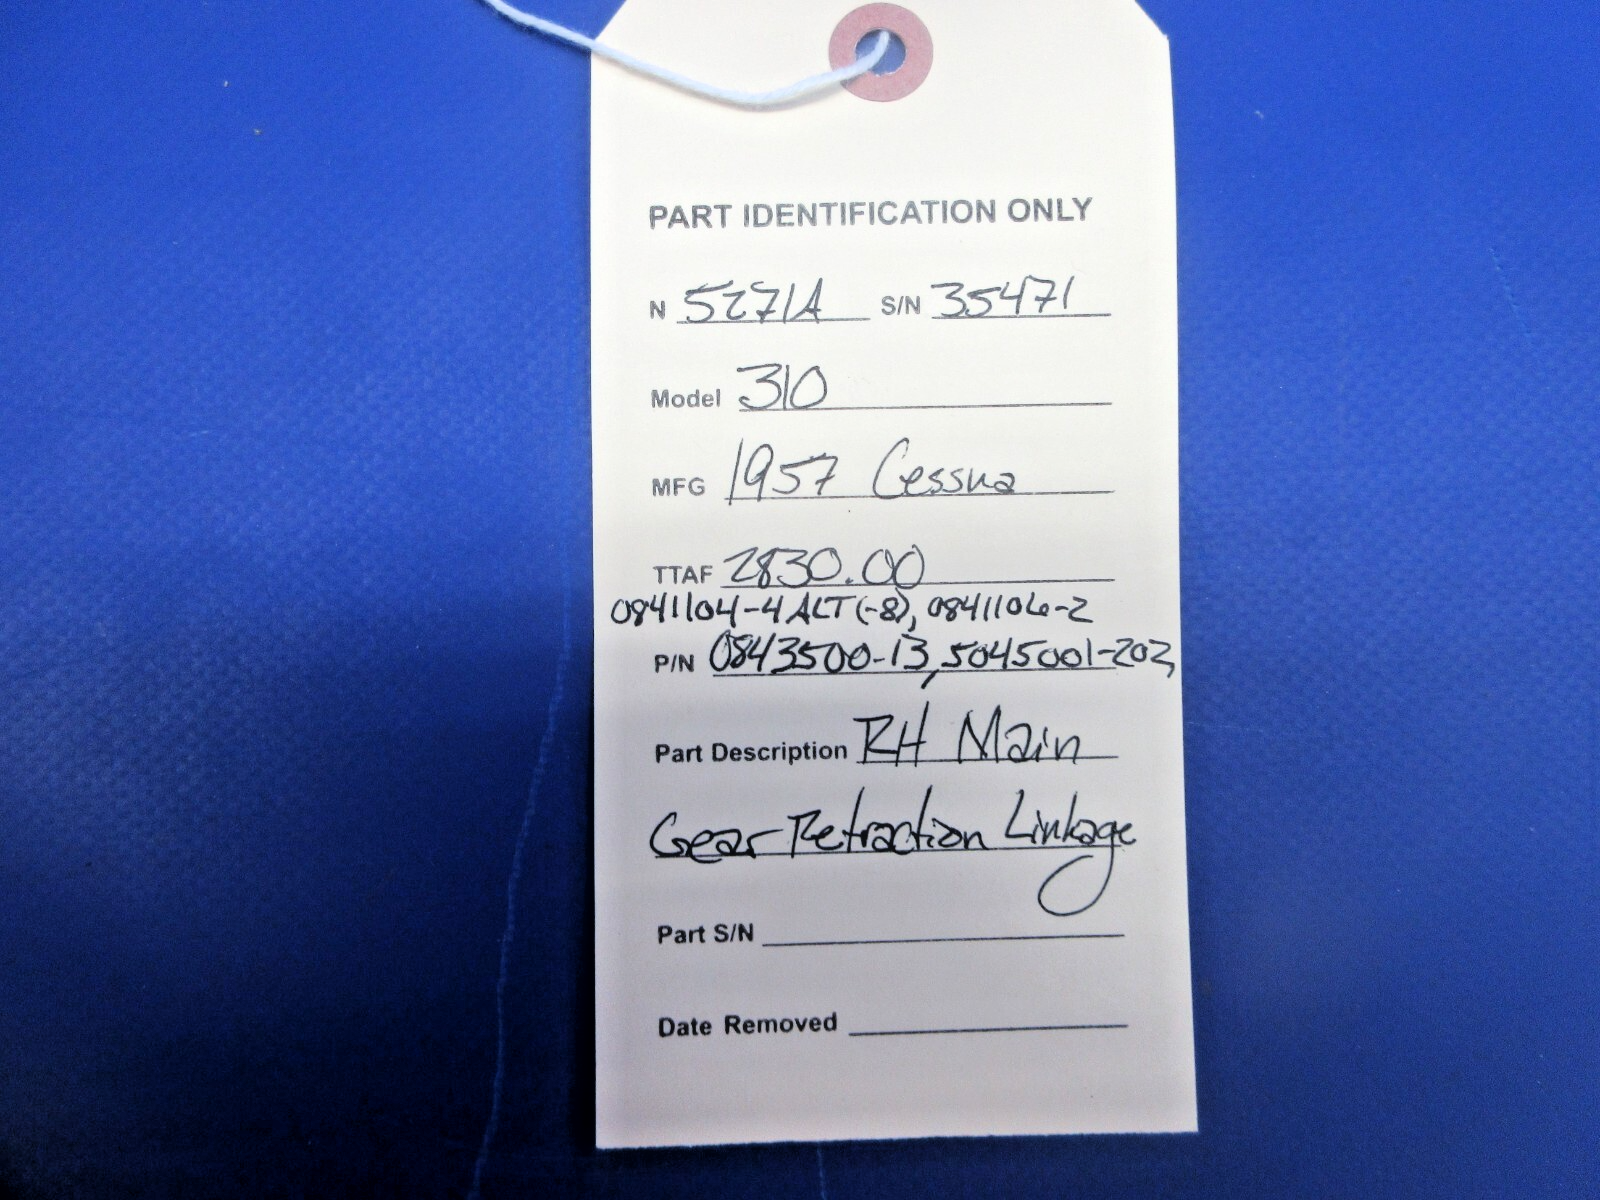 PART IDENTIFICATION ONLY
N 5271A S/N 35471
Model 310
MFG 1957 Cessna
TTAF 2830.00
0841104-4 ALT (-8), 0841106-2
P/N 0843500-13, 5045001-202,
Part Description RH Main
Gear Retraction Linkage
Part S/N
Date Removed